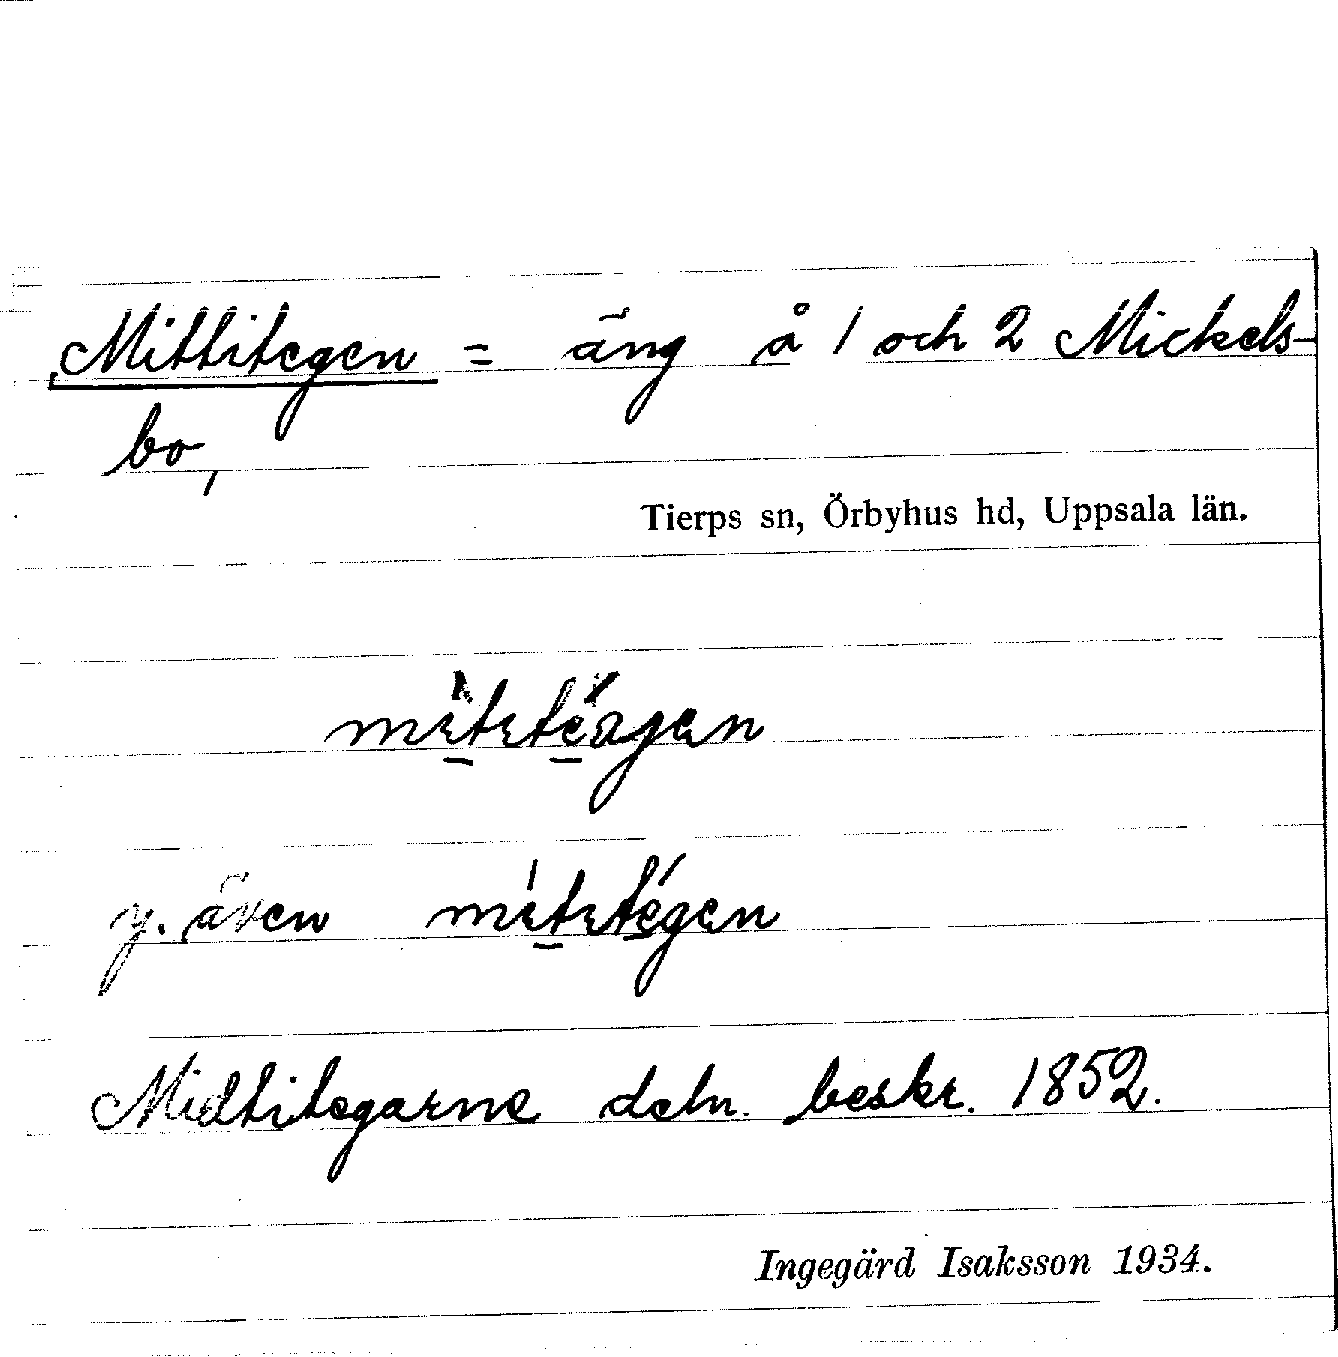 Mittitegen = äng å 1 och 2 Mickels-
bo,
Tierps sn, Örbyhus hd, Uppsala län.
y. även
Midtitegarne deln. beskr. 1852.
Ingegärd Isaksson 1934.